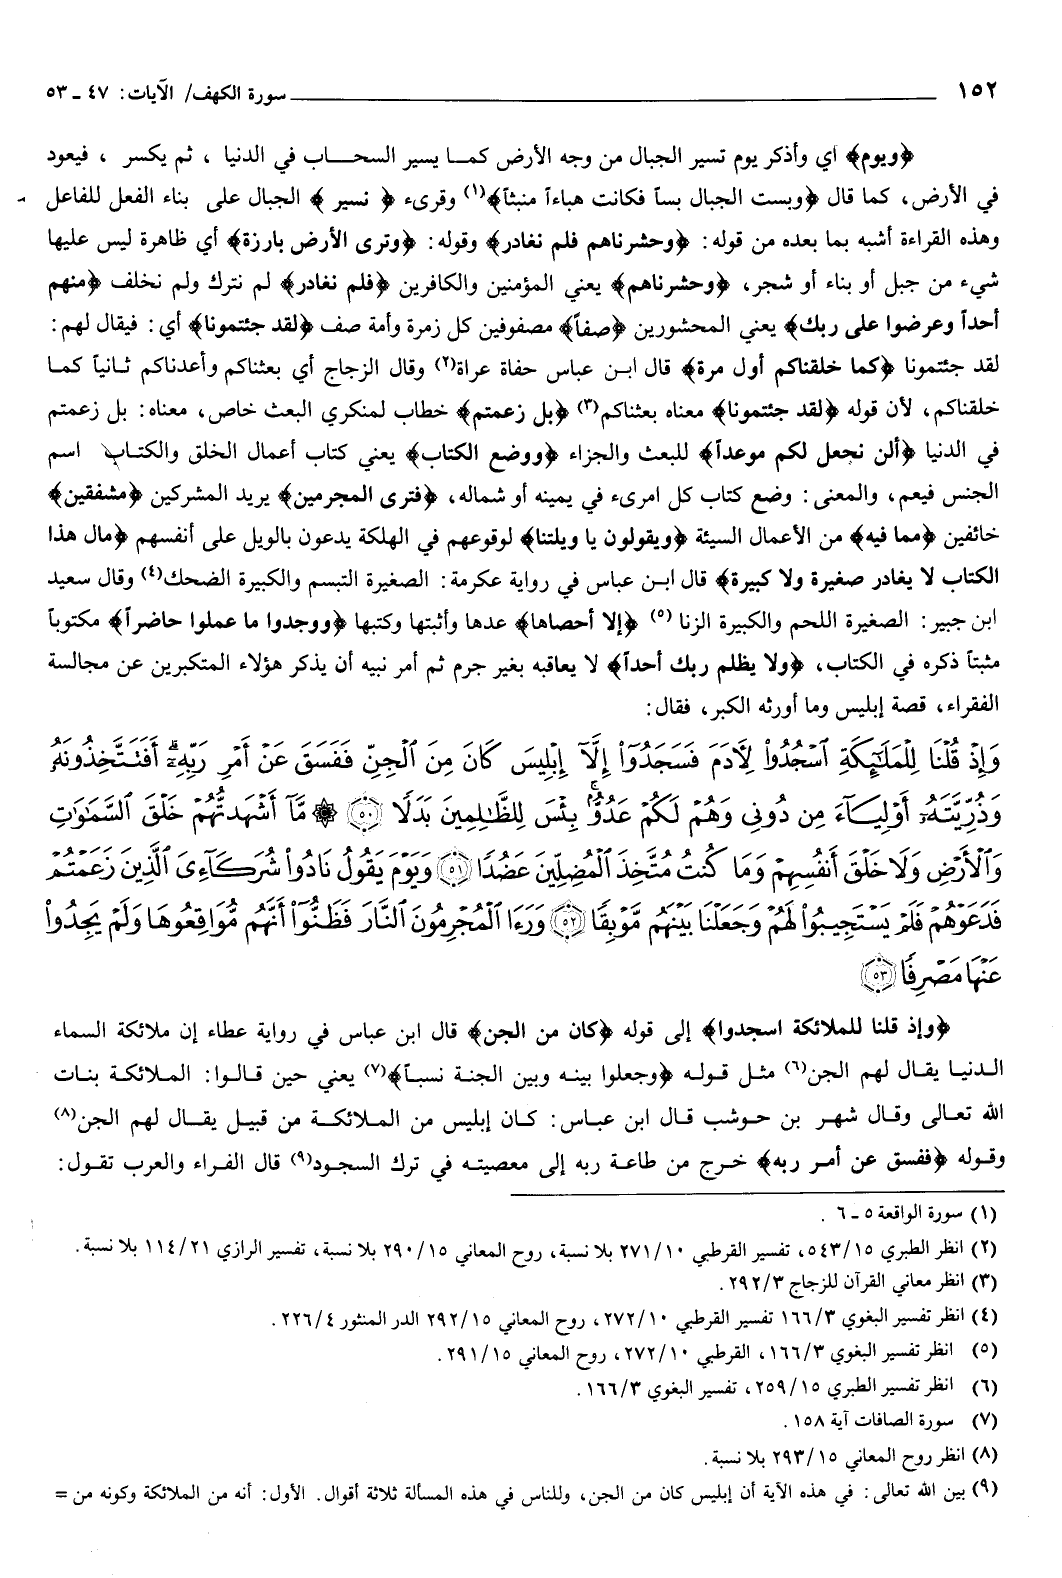 ١٥٢ ـــــــــــــــــــــــــــــــ سورة الكهف/ الآيات: ٤٧ ـ ٥٣
﴿ويوم﴾ أي وأذكر يوم تسير الجبال من وجه الأرض كمـا يسير السحـاب في الدنيا ، ثم يكسر ، فيعود
في الأرض، كما قال ﴿وبست الجبال بساً فكانت هباءاً منبثاً﴾(١) وقرىء ﴿ نسير ﴾ الجبال على بناء الفعل للفاعل
وهذه القراءة أشبه بما بعده من قوله: ﴿وحشرناهم فلم نغادر﴾ وقوله: ﴿وترى الأرض بارزة﴾ أي ظاهرة ليس عليها
شيء من جبل أو بناء أو شجر، ﴿وحشرناهم﴾ يعني المؤمنين والكافرين ﴿فلم نغادر﴾ لم نترك ولم نخلف ﴿منهم
أحداً وعرضوا على ربك﴾ يعني المحشورين ﴿صفاً﴾ مصفوفين كل زمرة وأمة صف ﴿لقد جئتمونا﴾ أي: فيقال لهم:
لقد جئتمونا ﴿كما خلقناكم أول مرة﴾ قال ابـن عباس حفاة عراة(٢) وقال الزجاج أي بعثناكم وأعدناكم ثـانياً كمـا
خلقناكم، لأن قوله ﴿لقد جئتمونا﴾ معناه بعثناكم(٣) ﴿بل زعمتم﴾ خطاب لمنكري البعث خاص، معناه: بل زعمتم
في الدنيا ﴿ألن نجعل لكم موعداً﴾ للبعث والجزاء ﴿ووضع الكتاب﴾ يعني كتاب أعمال الخلق والكتـاب اسم
الجنس فيعم، والمعنى: وضع كتاب كل امرىء في يمينه أو شماله، ﴿فترى المجرمين﴾ يريد المشركين ﴿مشفقين﴾
خائفين ﴿مما فيه﴾ من الأعمال السيئة ﴿ويقولون يا ويلتنا﴾ لوقوعهم في الهلكة يدعون بالويل على أنفسهم ﴿مال هذا
الكتاب لا يغادر صغيرة ولا كبيرة﴾ قال ابـن عباس في رواية عكرمة: الصغيرة التبسم والكبيرة الضحك(٤) وقال سعيد
ابن جبير: الصغيرة اللحم والكبيرة الزنا (٥) ﴿إلا أحصاها﴾ عدها وأثبتها وكتبها ﴿ووجدوا ما عملوا حاضراً﴾ مكتوباً
مثبتاً ذكره في الكتاب، ﴿ولا يظلم ربك أحداً﴾ لا يعاقبه بغير جرم ثم أمر نبيه أن يذكر هؤلاء المتكبرين عن مجالسة
الفقراء، قصة إبليس وما أورثه الكبر، فقال:
وَإِذْ قُلْنَا لِلْمَلَٰٓئِكَةِ ٱسْجُدُوا۟ لِءَادَمَ فَسَجَدُوٓا۟ إِلَّآ إِبْلِيسَ كَانَ مِنَ ٱلْجِنِّ فَفَسَقَ عَنْ أَمْرِ رَبِّهِۦٓ ۗ أَفَتَتَّخِذُونَهُۥ
وَذُرِّيَّتَهُۥٓ أَوْلِيَآءَ مِن دُونِى وَهُمْ لَكُمْ عَدُوٌّۢ ۚ بِئْسَ لِلظَّٰلِمِينَ بَدَلًا ﴿٥٠﴾ ۞ مَّآ أَشْهَدتُّهُمْ خَلْقَ ٱلسَّمَٰوَٰتِ
وَٱلْأَرْضِ وَلَا خَلْقَ أَنفُسِهِمْ وَمَا كُنتُ مُتَّخِذَ ٱلْمُضِلِّينَ عَضُدًا ﴿٥١﴾ وَيَوْمَ يَقُولُ نَادُوا۟ شُرَكَآءِىَ ٱلَّذِينَ زَعَمْتُمْ
فَدَعَوْهُمْ فَلَمْ يَسْتَجِيبُوا۟ لَهُمْ وَجَعَلْنَا بَيْنَهُم مَّوْبِقًا ﴿٥٢﴾ وَرَءَا ٱلْمُجْرِمُونَ ٱلنَّارَ فَظَنُّوٓا۟ أَنَّهُم مُّوَاقِعُوهَا وَلَمْ يَجِدُوا۟
عَنْهَا مَصْرِفًا ﴿٥٣﴾
﴿وإذ قلنا للملائكة اسجدوا﴾ إلى قوله ﴿كان من الجن﴾ قال ابن عباس في رواية عطاء إن ملائكة السماء
الـدنيـا يقـال لهم الجن(٦) مثـل قـولـه ﴿وجعلوا بينه وبين الجنة نسبـاً﴾(٧) يعني حين قـالـوا: المـلائكـة بنـات
الله تعـالى وقـال شهـر بن حـوشب قـال ابن عبـاس: كـان إبليس من المـلائكـة من قبيـل يقـال لهم الجن(٨)
وقـولـه ﴿ففسق عن أمـر ربه﴾ خـرج من طاعـة ربه إلى معصيتـه في ترك السجـود(٩) قال الفـراء والعرب تقـول:
(١) سورة الواقعة ٥ ـ ٦ .
(٢) انظر الطبري ٥٤٣/١٥، تفسير القرطبي ٢٧١/١٠ بلا نسبة، روح المعاني ٢٩٠/١٥ بلا نسبة، تفسير الرازي ١١٤/٢١ بلا نسبة.
(٣) انظر معاني القرآن للزجاج ٢٩٢/٣ .
(٤) انظر تفسير البغوي ١٦٦/٣ تفسير القرطبي ٢٧٢/١٠، روح المعاني ٢٩٢/١٥ الدر المنثور ٢٢٦/٤ .
(٥) انظر تفسير البغوي ١٦٦/٣، القرطبي ٢٧٢/١٠، روح المعاني ٢٩١/١٥ .
(٦) انظر تفسير الطبري ٢٥٩/١٥، تفسير البغوي ١٦٦/٣ .
(٧) سورة الصافات آية ١٥٨ .
(٨) انظر روح المعاني ٢٩٣/١٥ بلا نسبة.
(٩) بين الله تعالى: في هذه الآية أن إبليس كان من الجن، وللناس في هذه المسألة ثلاثة أقوال. الأول: أنه من الملائكة وكونه من =